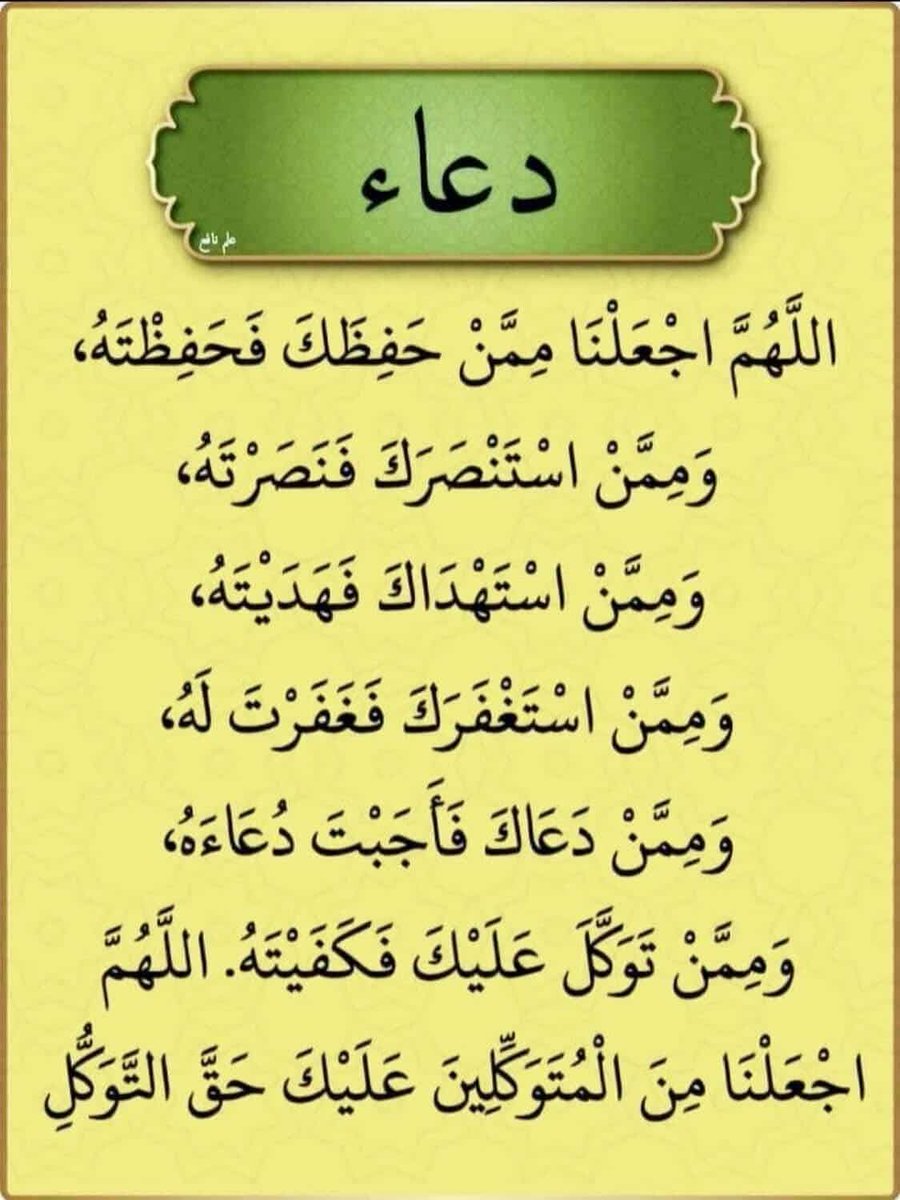 دعاء
علم نافع
اللَّهُمَّ اجْعَلْنَا مِمَّنْ حَفِظَكَ فَحَفِظْتَهُ،
وَمِمَّنْ اسْتَنْصَرَكَ فَنَصَرْتَهُ،
وَمِمَّنْ اسْتَهْدَاكَ فَهَدَيْتَهُ،
وَمِمَّنْ اسْتَغْفَرَكَ فَغَفَرْتَ لَهُ،
وَمِمَّنْ دَعَاكَ فَأَجَبْتَ دُعَاءَهُ،
وَمِمَّنْ تَوَكَّلَ عَلَيْكَ فَكَفَيْتَهُ. اللَّهُمَّ
اجْعَلْنَا مِنَ الْمُتَوَكِّلِينَ عَلَيْكَ حَقَّ التَّوَكُّلِ